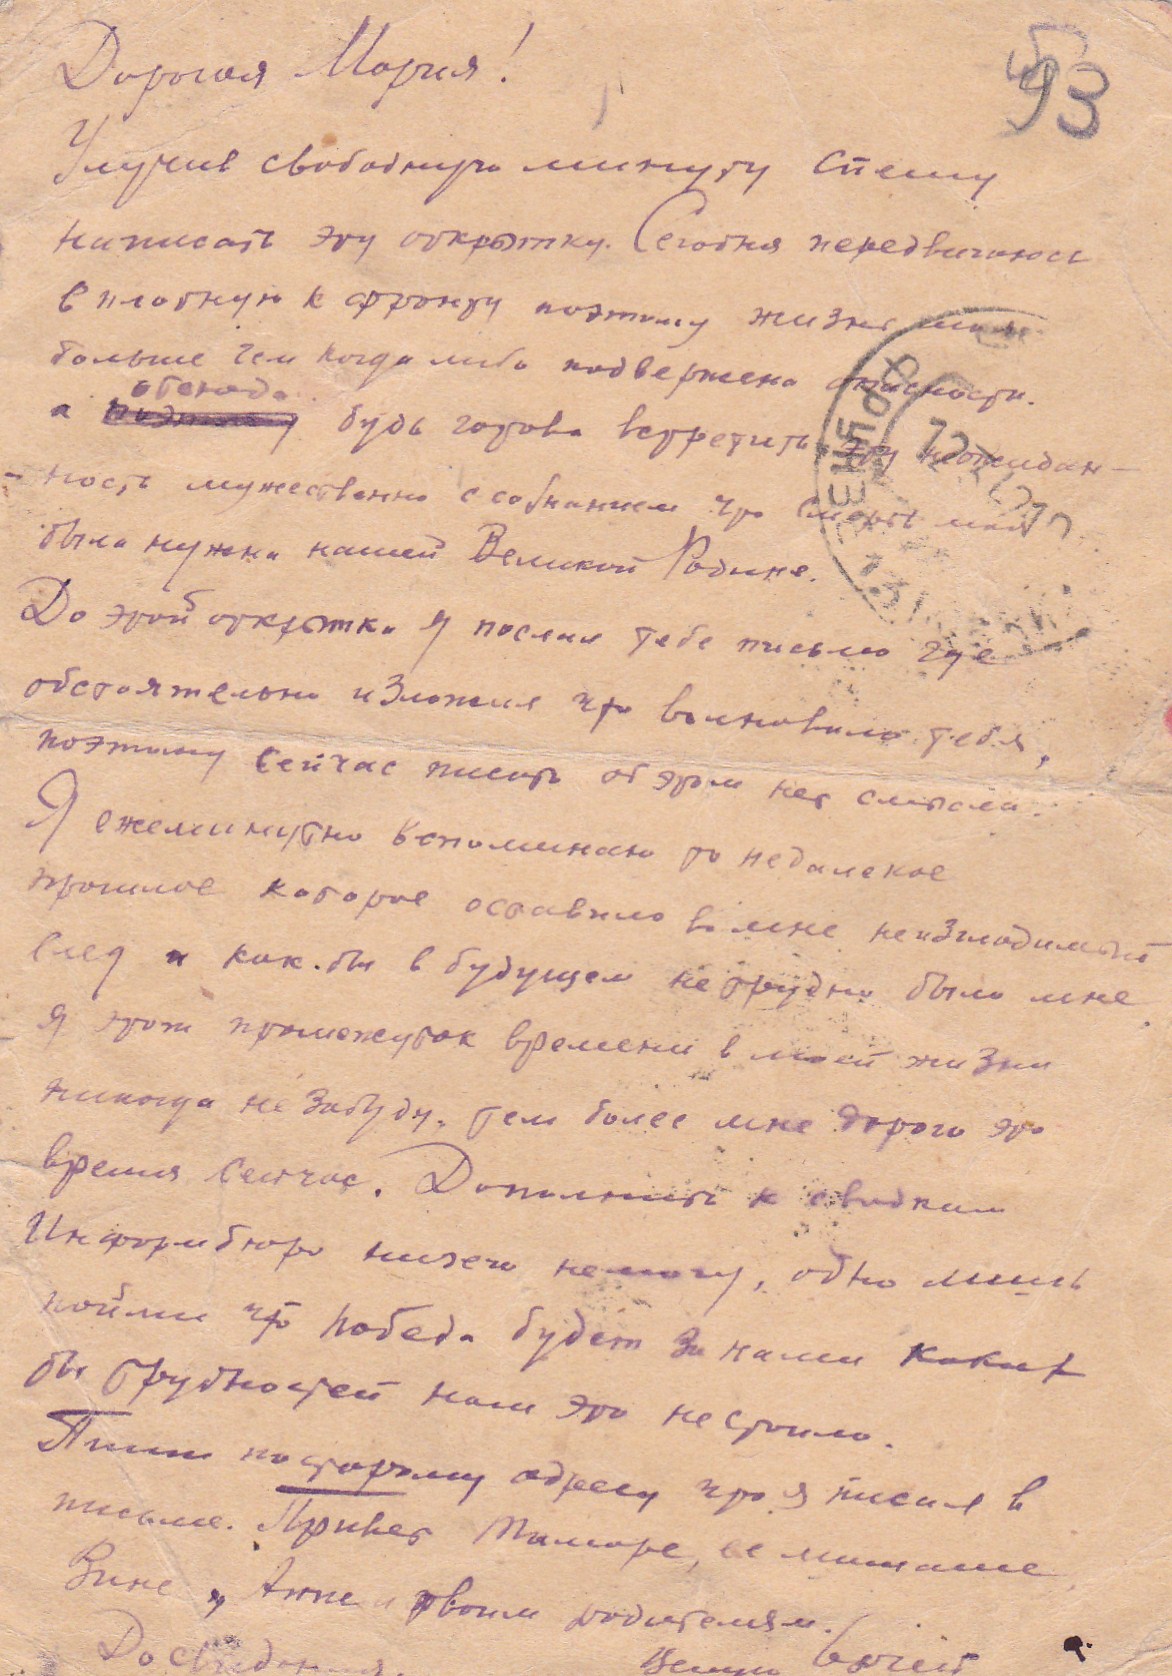 93
Дорогая Мария!
Улучив свободную минуту спешу
написать эту открытку. Сегодня передвигаюсь
вплотную к фронту поэтому жизнь моя
больше чем когда либо подвержена опасности.
отсюда
а будь готова встретить эту неожидан-
-ность мужественно с сознанием что смерть моя
была нужна нашей Великой Родине.
До этой открытки я послал тебе письмо где
обстоятельно изложил что волновало тебя,
поэтому сейчас писать об этом нет смысла.
Я ежеминутно вспоминаю то недалекое
прошлое которое оставило во мне неизгладимый
след и как бы в будущем не трудно было мне
я этот промежуток времени в моей жизни
никогда не забуду, тем более мне дорого это
время сейчас. Дополнить к сводкам
Информбюро ничего немогу, одно лишь
пойми что победа будет за нами каких
бы трудностей нам это не стоило.
Пиши по старому адресу что я писал в
письме. Привет Тамаре, ее мамаше,
Зине, Анне и твоим родителям.
До свидания.